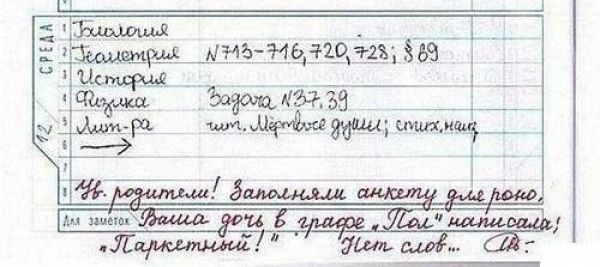 СРЕДА
12
1 Биология
2 Геометрия N713-716, 720, 728; § 89
3 История
4 Физика Задача N37.39
5 Лит-ра чит. Мёртвые души; стих. наиз
6 →
7
8 Ув. родители! Заполняли анкету для роно.
Для заметок Ваша дочь в графе „Пол" написала:
„Паркетный!" Нет слов...